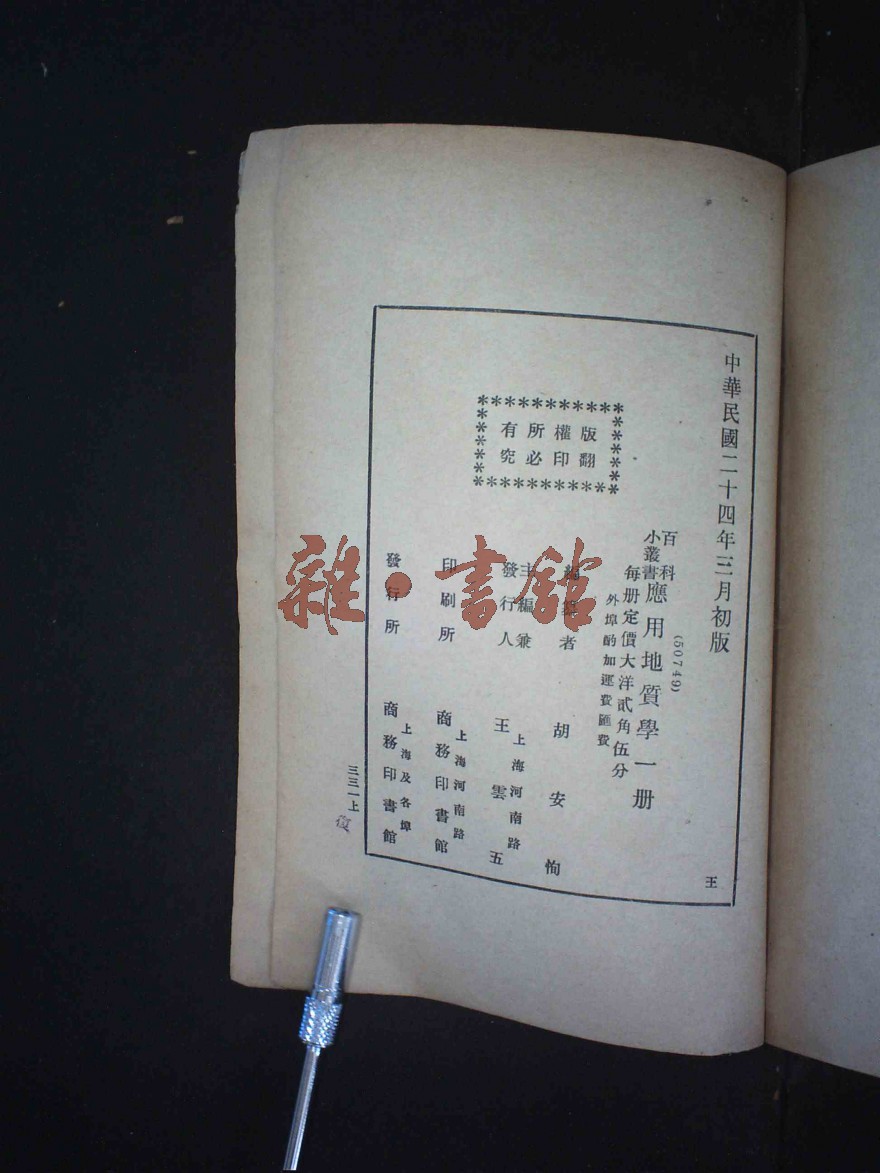 中華民國二十四年三月初版
(50749)
百科小叢書
應用地質學一册
每册定價大洋貳角伍分
外埠酌加運費匯費
王
版權所有
翻印必究
編纂者 胡安恂
主編兼發行人 王雲五
上海河南路
印刷所 商務印書館
上海河南路
發行所 商務印書館
上海及各埠
三三一上
雜·書館